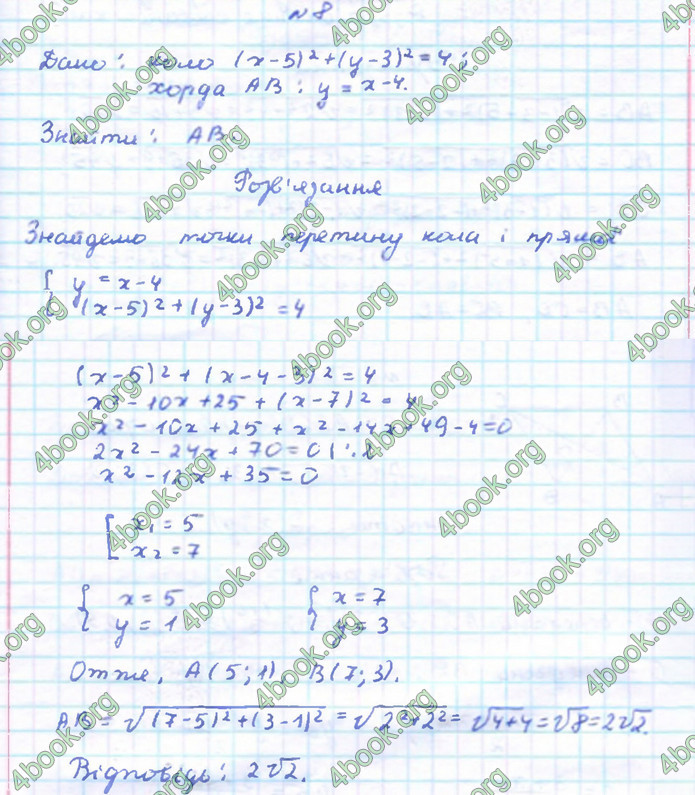 № 8
Дано: коло (x-5)²+(y-3)²=4;
хорда AB: y = x-4.
Знайти: AB.
Розв'язання
Знайдемо точки перетину кола і прямої
{ y = x-4
(x-5)²+(y-3)²=4
(x-5)²+(x-4-3)²=4
x²-10x+25+(x-7)²=4
x²-10x+25+x²-14x+49-4=0
2x²-24x+70=0 | :2
x²-12x+35=0
[ x₁=5
x₂=7
{ x=5 { x=7
y=1 y=3
Отже, A(5;1), B(7;3).
AB=√(7-5)²+(3-1)²=√2²+2²=√4+4=√8=2√2.
Відповідь: 2√2.
4book.org